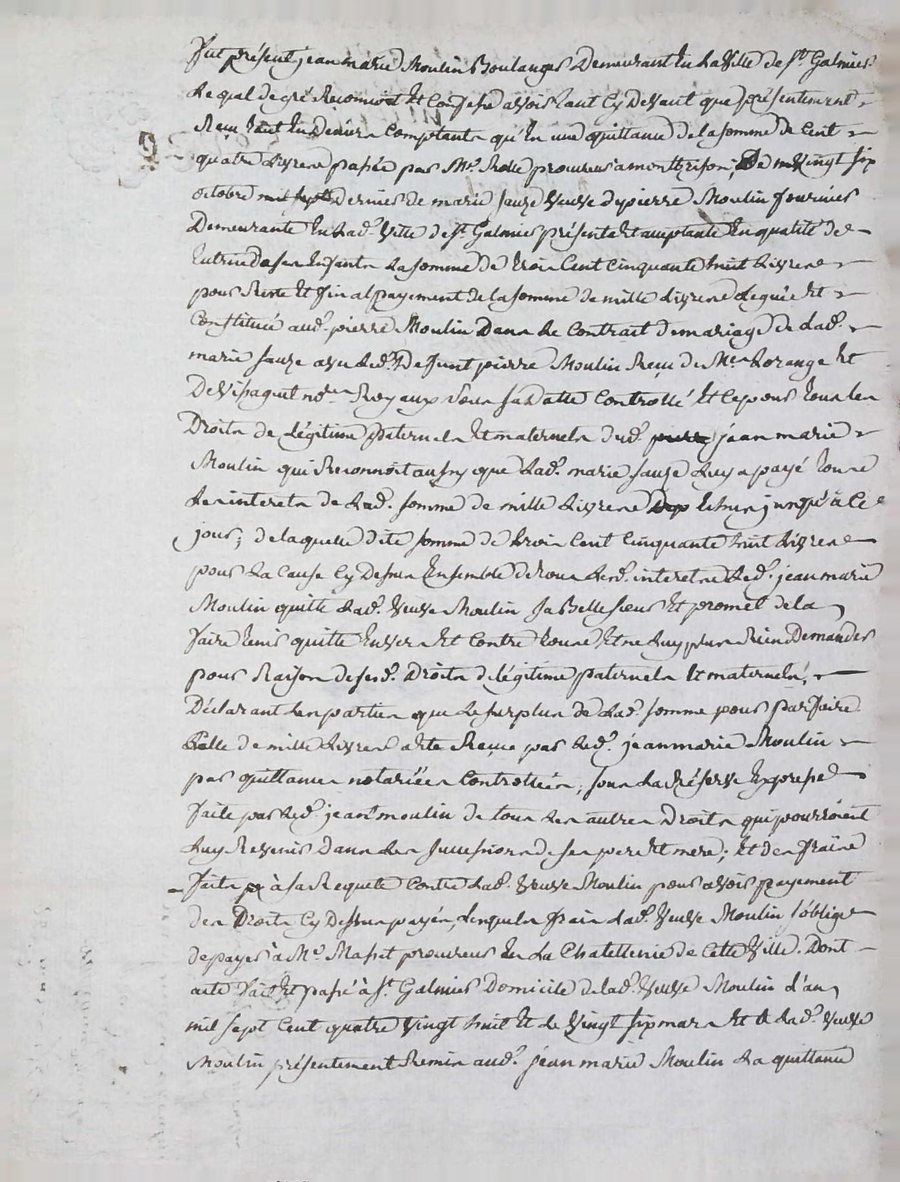 fut présent jean marie Moulin Boulanger Demeurant En La Ville de St Galmier
Lequel de gré Reconnoit Et Confesse avoir tant Cy Devant que présentement
Reçu tout En Deniers Comptants qu'En une quittance de la somme de Cent
quatre Livres passée par Me procureur a montbrison, De vingt six
octobre Dernier de marie sauze Veuve de pierre Moulin fournier
Demeurante En Lad. Ville de St Galmier présente Et acceptante En qualité de
tutrice de ses Enfants La somme de trois Cent Cinquante huit Livres
pour Reste Et final payement de la somme de mille Livres Leguée Et
Constituée aud. pierre Moulin Dans Le Contrait de mariage de Lad.
marie sauze avec Led. Deffunt pierre Moulin Reçu de Mes Lorange Et
Devissaguet nores Royaux sous sa Datte Controllé Et Ce pour tous Les
Droits de Légitime paternels Et maternels dud. jean marie
Moulin qui Reconnoit aussy que Lad. marie sauze Luy a payé tous
Les interets de Lad. somme de mille Livres Echus jusqu'à Ce
jour; de laquelle dite somme de trois Cent Cinquante huit Livres
pour La Cause Cy Dessus Ensemble de tous Lesd. interets Led. jean marie
Moulin quitte Lad. Veuve Moulin sa Belle sœur Et promet de la
faire tenir quitte Envers Et Contre tous Et ne Luy plus Rien Demander
pour Raison de sesd. Droits de Légitime paternels Et maternels,
Déclarant Les parties que Le surplus de Lad. somme pour parfaire
Celle de mille Livres a été Reçue par Led. jean marie Moulin
par quittances notariées Controllées, sous La Réserve Expresse
faite par Led. jean moulin de tous Les autres Droits qui pourroient
Luy Revenir Dans Les successions de ses pere Et mere; Et des frais
faits à sa Requete Contre Lad. Veuve Moulin pour avoir payement
des Droits Cy Dessus payés, desquels frais Lad. Veuve Moulin s'oblige
de payer à Me Masset procureur En La Chatellenie de Cette Ville. Dont
acte fait Et passé à St Galmier Domicile de lad. Veuve Moulin L'an
mil sept Cent quatre Vingt huit Et Le Vingt six mars Et Lad. Veuve
Moulin présentement Remis aud. jean marie Moulin La quittance